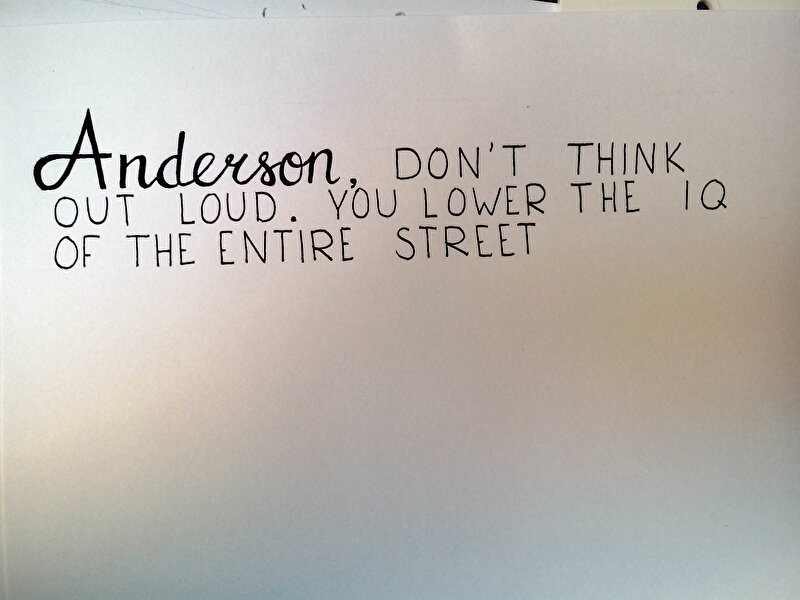 Anderson, DON'T THINK
OUT LOUD. YOU LOWER THE IQ
OF THE ENTIRE STREET